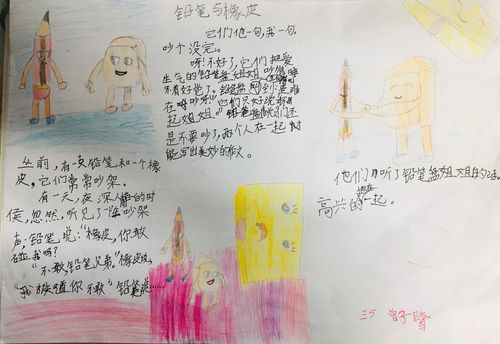 铅笔与橡皮
从前,有一支铅笔和一个橡
皮,它们常常吵架。
有一天,夜深人静的时
侯,忽然,听见了一阵吵架
声,铅笔说:“橡皮,你敢
碰我吗?
“不敢,铅笔兄弟。”橡皮说。
“我 你不敢”铅笔说……
它们他一句,我一句,
吵个没完。
呀!不好了,它们把爱
生气的铅笔盒姐姐吵
不着好觉了。铅笔盒 到 是谁
在吵 呀!”它们只好说
起姐姐。”铅笔盒 你们还
是不要吵了,两个人在一起才
能写出美妙的作文。
他们听了铅笔盒姐姐的话。
高兴的 一起。
三5